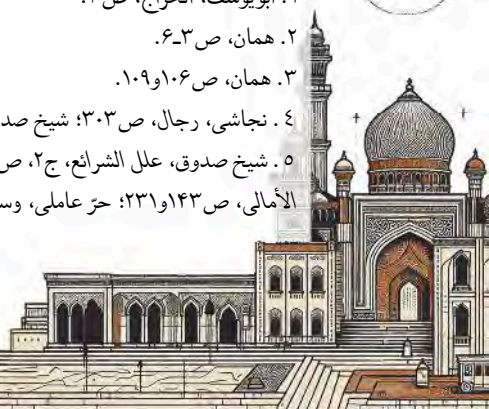 ۱. ابویوسف، الخراج، ص
۲. همان، ص۳ـ۶.
۳. همان، ص۱۰۶و۱۰۹.
٤. نجاشی، رجال، ص۳۰۳؛ شیخ
۵. شیخ صدوق، علل الشرائع، ج۲،
الأمالی، ص۱۴۳و۲۳۱؛ حرّ عاملی،